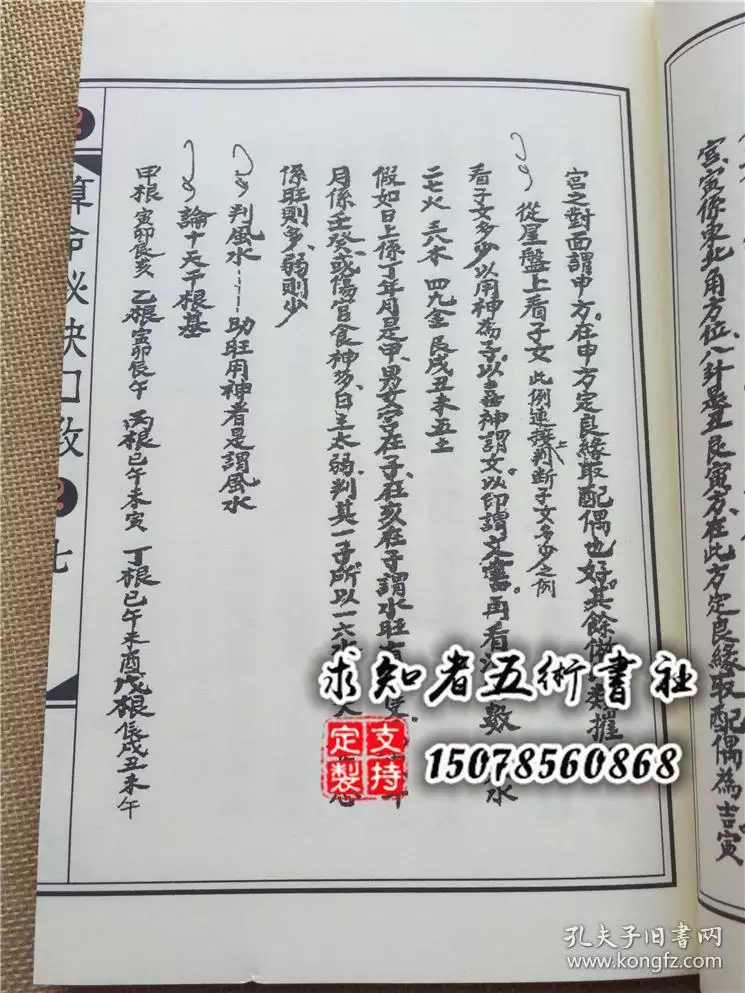 宫寅係東北角方位八計是丑艮寅方在此方定良緣取配偶為吉寅
宮之對面謂申方。在申方定良緣取配偶也好。其餘
從星盤上看子女 此例連接上判断子女多少之例
看子女多少以用神為子以喜神謂女以印謂文書。再看 數 水
二七火 三八木 四九金 艮戌丑未五土
假如日上係丁年月是甲男女宮在子在亥在子謂水旺
月係壬癸或傷官食神多日主太弱。判其一子所以一六水
係旺則多弱則少
判風水——助旺用神者是謂風水
論十天干根基
甲根 寅卯辰亥 乙根 寅卯辰午 丙根 巳午未寅 丁根 巳午未酉 戊根 辰戌丑未午
算命秘訣口教
七
求知者五術書社
支持定製
15078560868
孔夫子旧書网
www.kongfz.com